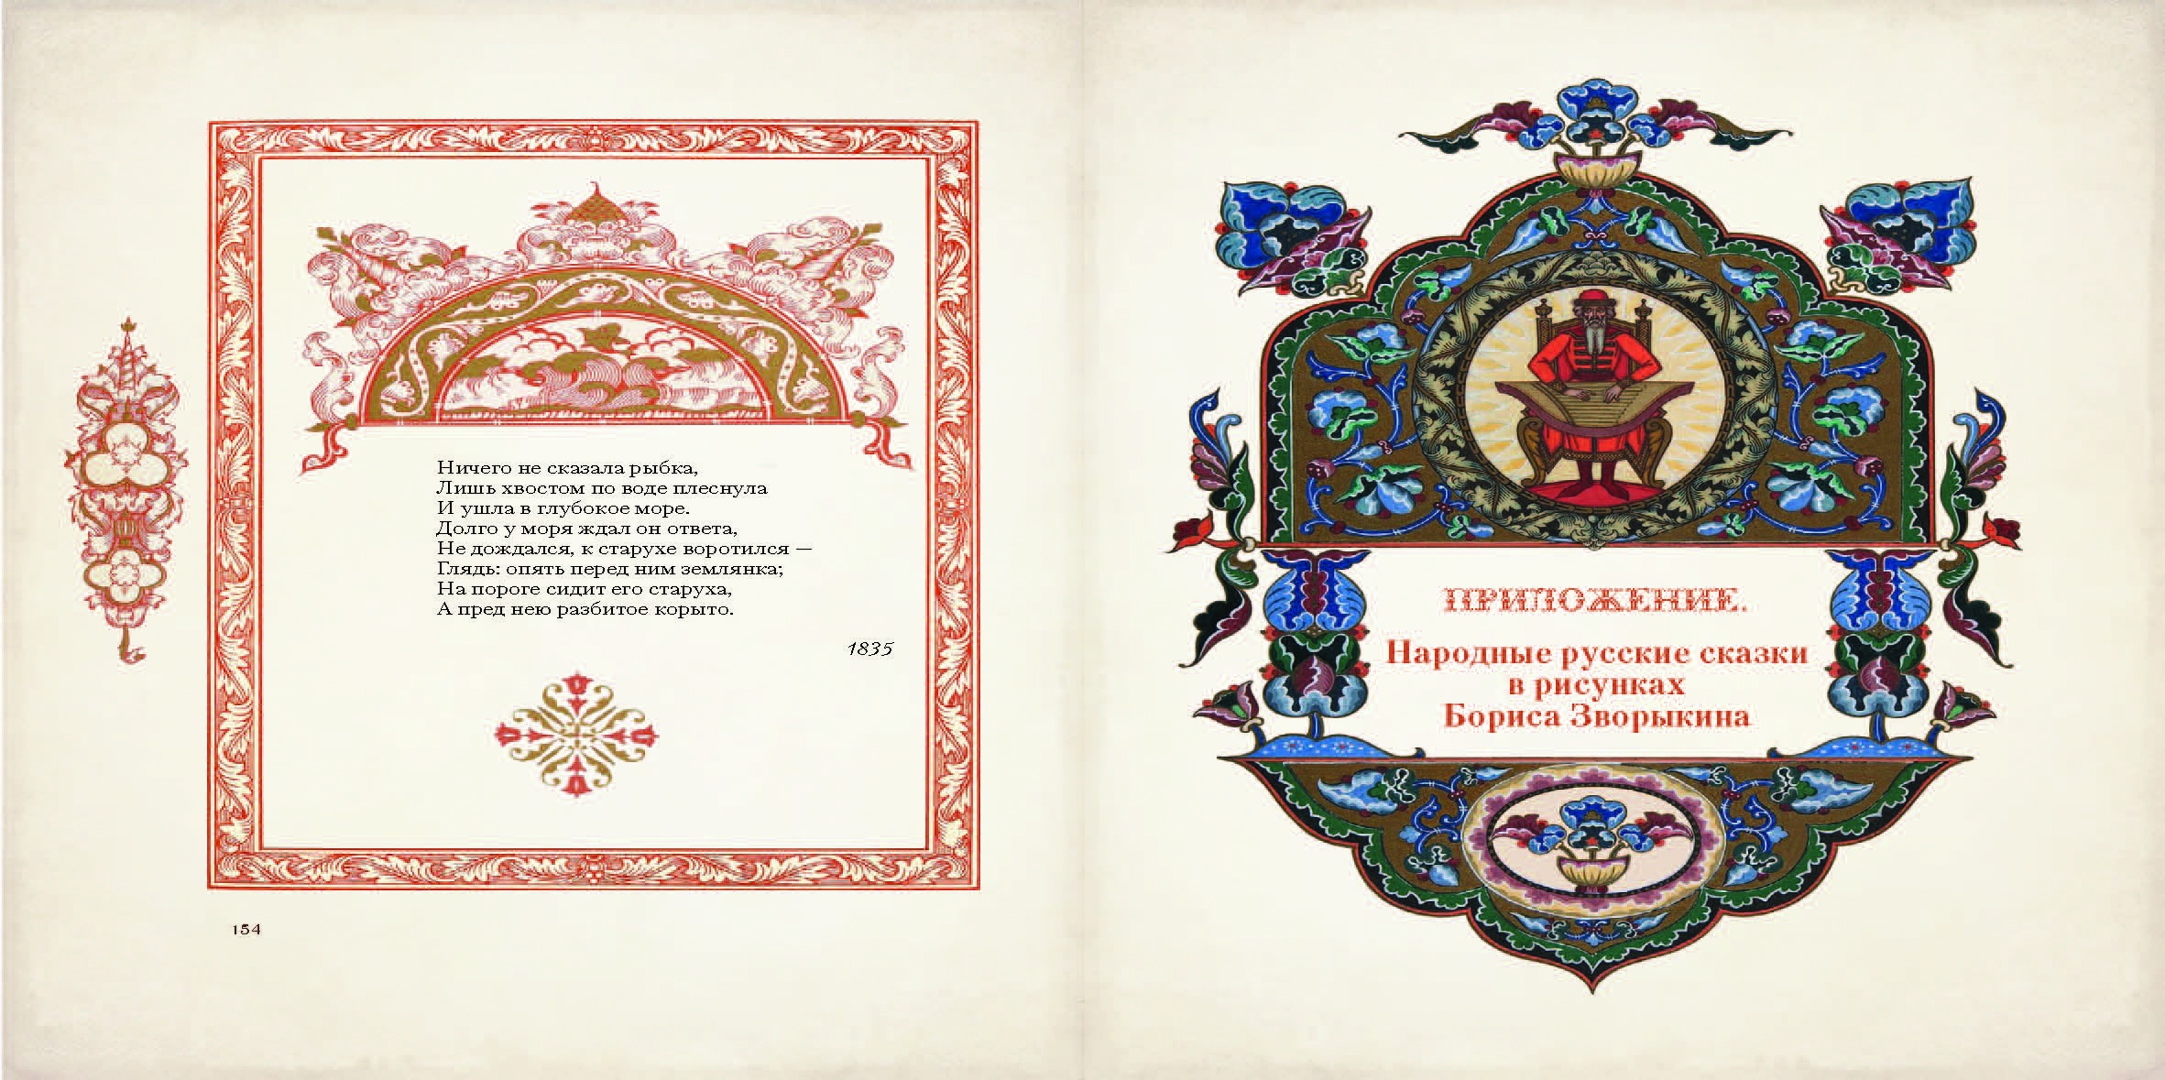 Ничего не сказала рыбка,
Лишь хвостом по воде плеснула
И ушла в глубокое море.
Долго у моря ждал он ответа,
Не дождался, к старухе воротился —
Глядь: опять перед ним землянка;
На пороге сидит его старуха,
А пред нею разбитое корыто.
1835
154
ПРИЛОЖЕНИЕ.
Народные русские сказки
в рисунках
Бориса Зворыкина